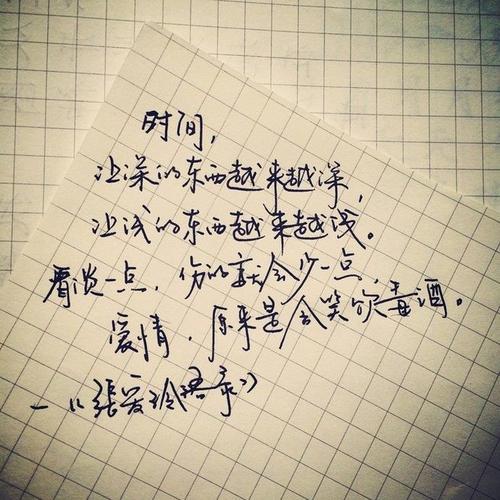 时间，
让深的东西越来越深，
让浅的东西越来越浅。
看淡一点，伤的就会少一点，
爱情，原来是含笑饮毒酒。
—《张爱玲语录》